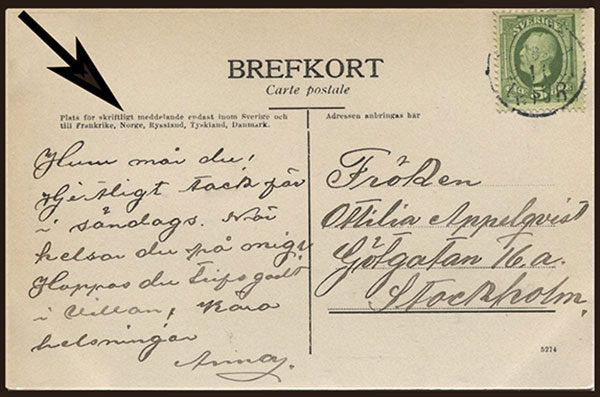 SVERIGE
5
BREFKORT
Carte postale
Plats för skriftligt meddelande endast inom Sverige och
till Frankrike, Norge, Ryssland, Tyskland, Danmark.
Adressen anbringas här
Hum mår du!
Hjertligt tack för
i söndags. När
helsar du på mig?
Hoppas du trifs godt
i Villan, Kära
helsningar
Anna.
Fröken
Ottilia Appelqvist
Götgatan 16 a.
Stockholm.
5274